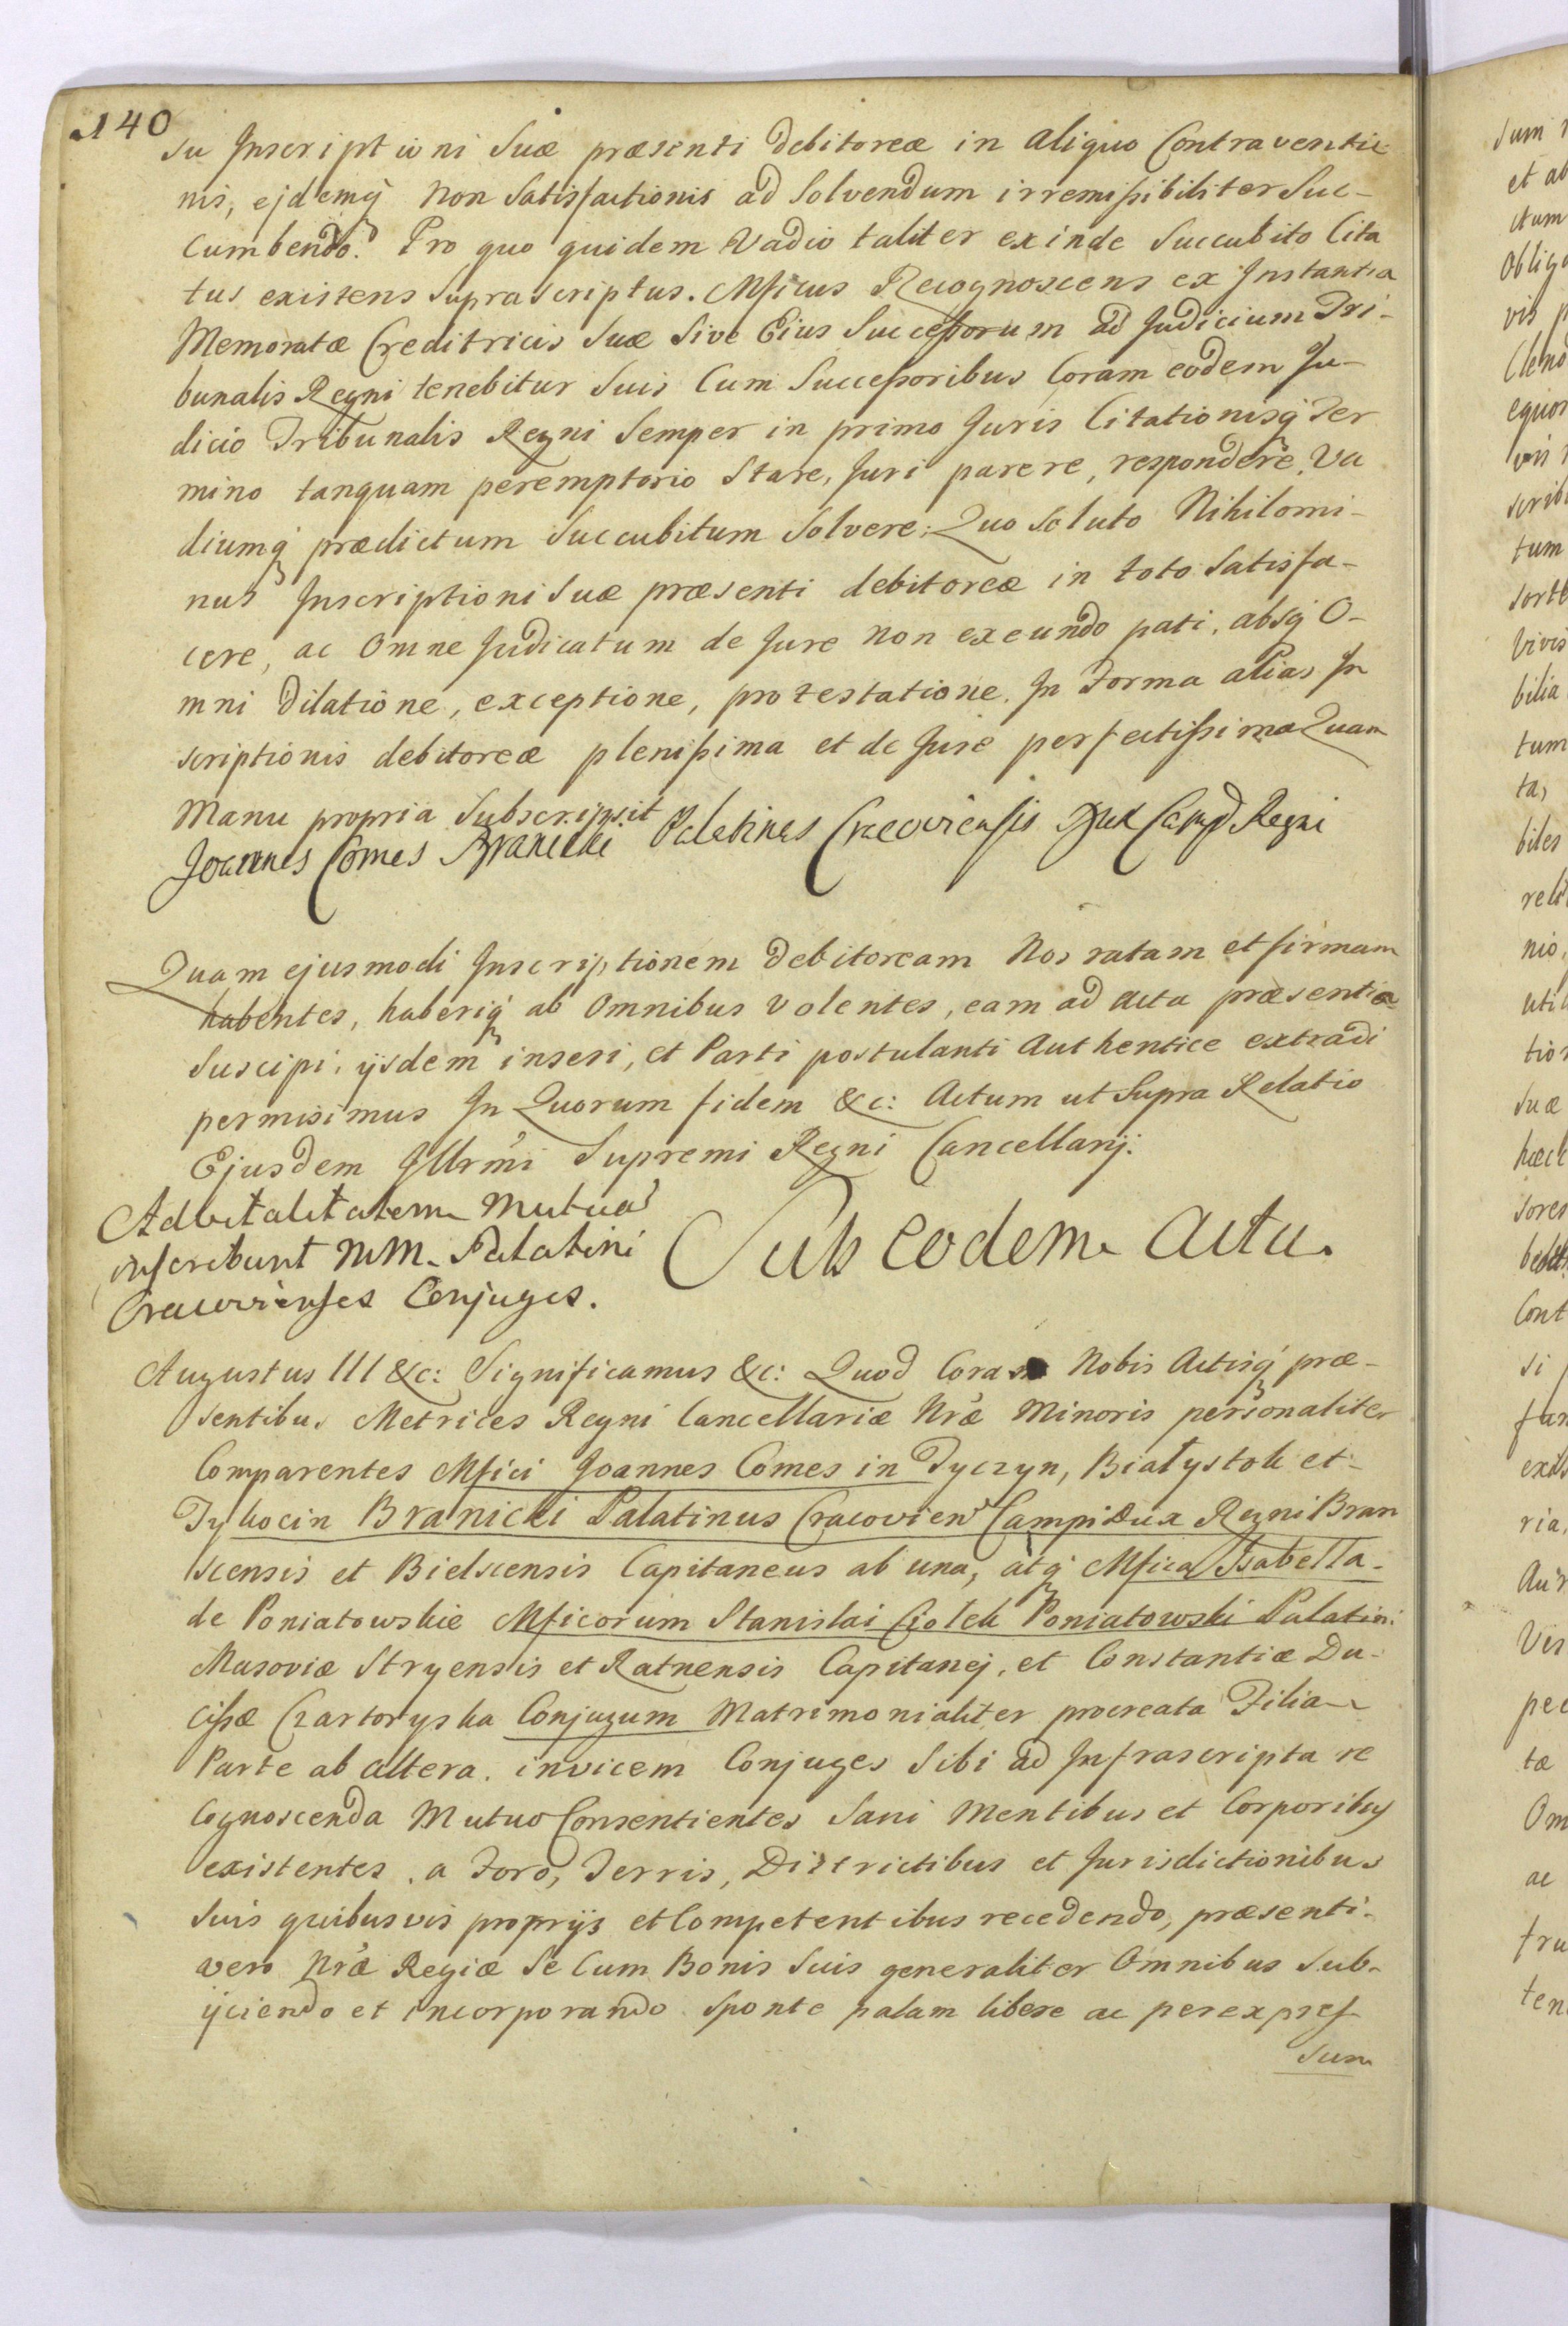 140
su Inscriptioni Suæ præsenti debitoreæ in aliquo Contraventio
nis, ejdemq́ Non Satisfactionis ad Solvendum irremissibiliter Suc-
Cumbendo. Pro quo quidem Vadio taliter exinde Succubito Cita
tus existens Suprascriptus. Mficus Recognoscens ex Instantia
Memoratæ Creditricis Suæ Sive Eius Successorum ad Judicium Tri-
bunalis Regni tenebitur Suis Cum Successoribus Coram eodem Ju-
dicio Tribunalis Regni Semper in primo Juris Citationisq́ Ter
mino tanquam peremptorio Stare, Juri parere, respondere, Va
diumq́ prædictum Succubitum Solvere, Quo Soluto Nihilomi-
nus Inscriptioni Suæ præsenti debitoreæ in toto Satisfa-
cere, ac Omne Judicatum de Jure Non exeundo pati, absq́ O-
mni Dilatione, exceptione, protestatione. In Forma alias In
scriptionis debitoreæ plenissima et de Jure perfectissima Quam
Manu propria Subscripsit
Joannes Comes Branicki Palatinus Cracoviensis Dux Camp Regni
Quam ejusmodi Inscriptionem Debitoream Nos ratam et firmam
habentes, haberiq́ ab Omnibus Volentes, eam ad Acta præsentia
Suscipi, ijsdem inseri, et Parti postulanti Authentice extradi
permisimus In Quorum fidem &c: Actum ut Supra Relatio
Ejusdem Illrmi Supremi Regni Cancellarij.
Advitalitatem Mutuã
inscribunt MM. Palatini
Cracovienses Conjuges.
Sub eodem Actu.
Augustus III &c: Significamus &c: Quod Coram Nobis Actisq́ præ-
sentibus Metrices Regni Cancellariæ Nræ Minoris personaliter
Comparentes Mfici Joannes Comes in Tyczyn, Białystok et
Tykocin Branicki Palatinus Cracovien Campi Dux Regni Bran
scensis et Bielscensis Capitaneus ab una, atq́ Mfica Isabella
de Poniatowskie Mficorum Stanislai Ciołek Poniatowski Palatini
Masoviæ Stryensis et Ratnensis Capitanej, et Constantiæ Du-
cissæ Czartoryska Conjugum Matrimonialiter procreata Filia
Parte ab altera. invicem Conjuges Sibi ad Infrascripta re
Cognoscenda Mutuo Consentientes Sani Mentibus et Corporibus
existentes. a Foro, Terris, Districtibus et Jurisdictionibus
Suis quibusvis proprijs et Competentibus recedendo, præsenti
vero Nræ Regiæ Se Cum Bonis Suis generaliter Omnibus Sub-
ijciendo et incorporando Sponte palam libere ac per expres
Sum